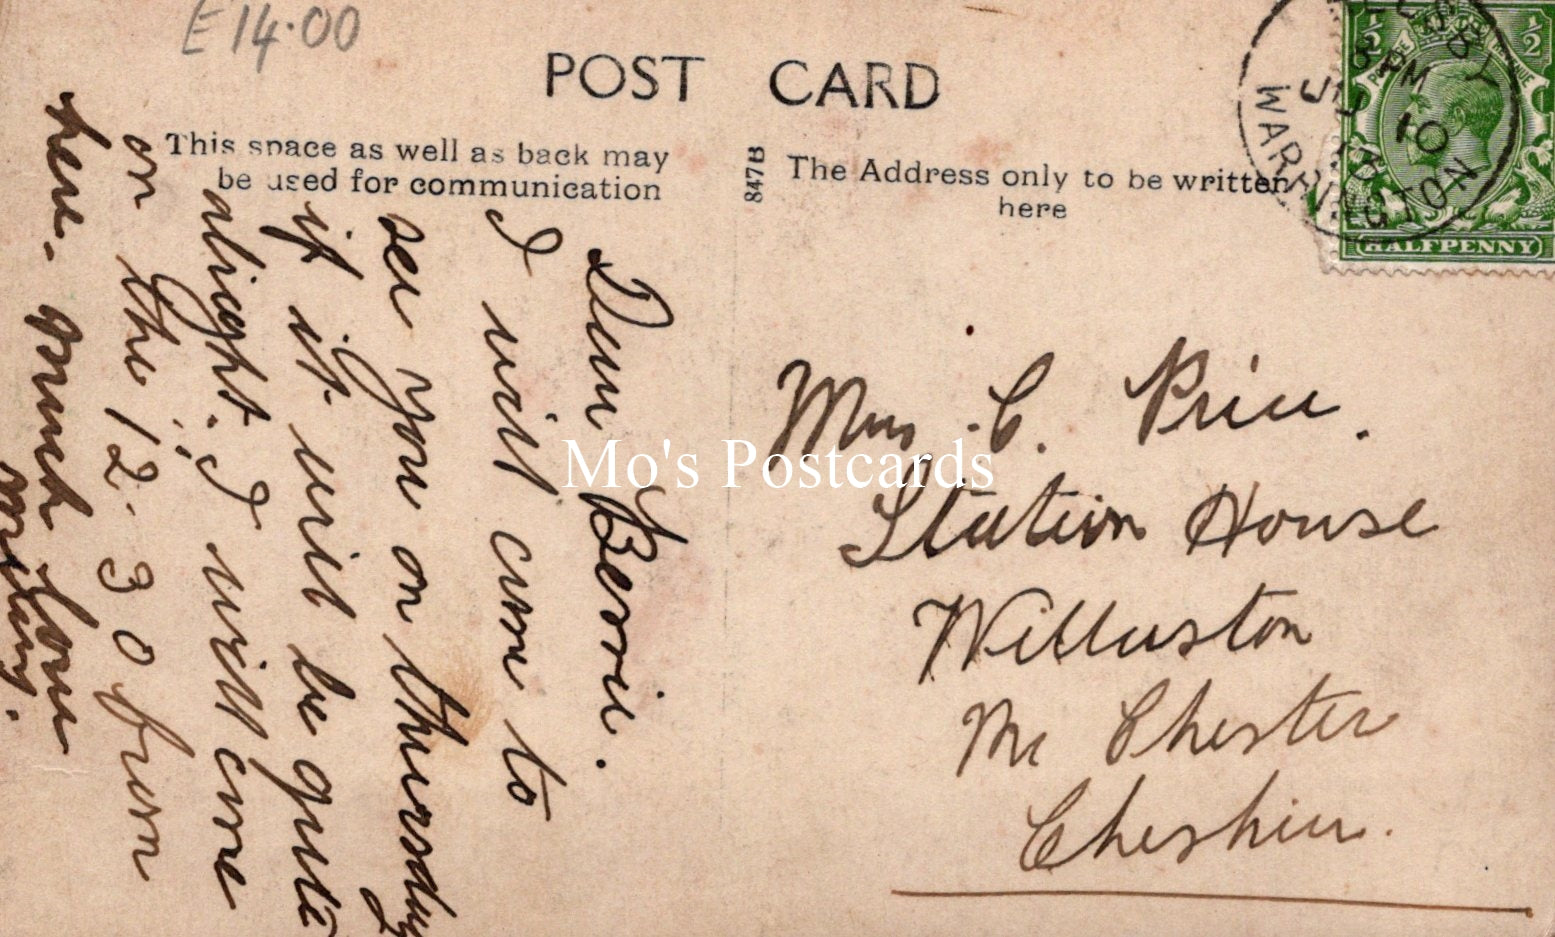 E 14.00
POST CARD
This space as well as back may
be used for communication
847B
The Address only to be written
here
8 PM
JU 10
13
WARRINGTON
½ ½
HALFPENNY
Dear Bessie.
I will come to
see you on thursday
if it will be quite
alright. I will come
on the 12.30 from
here. Much love
Mrs C. Price.
Station House
Willaston
Nr Chester
Cheshire.
Mo's Postcards